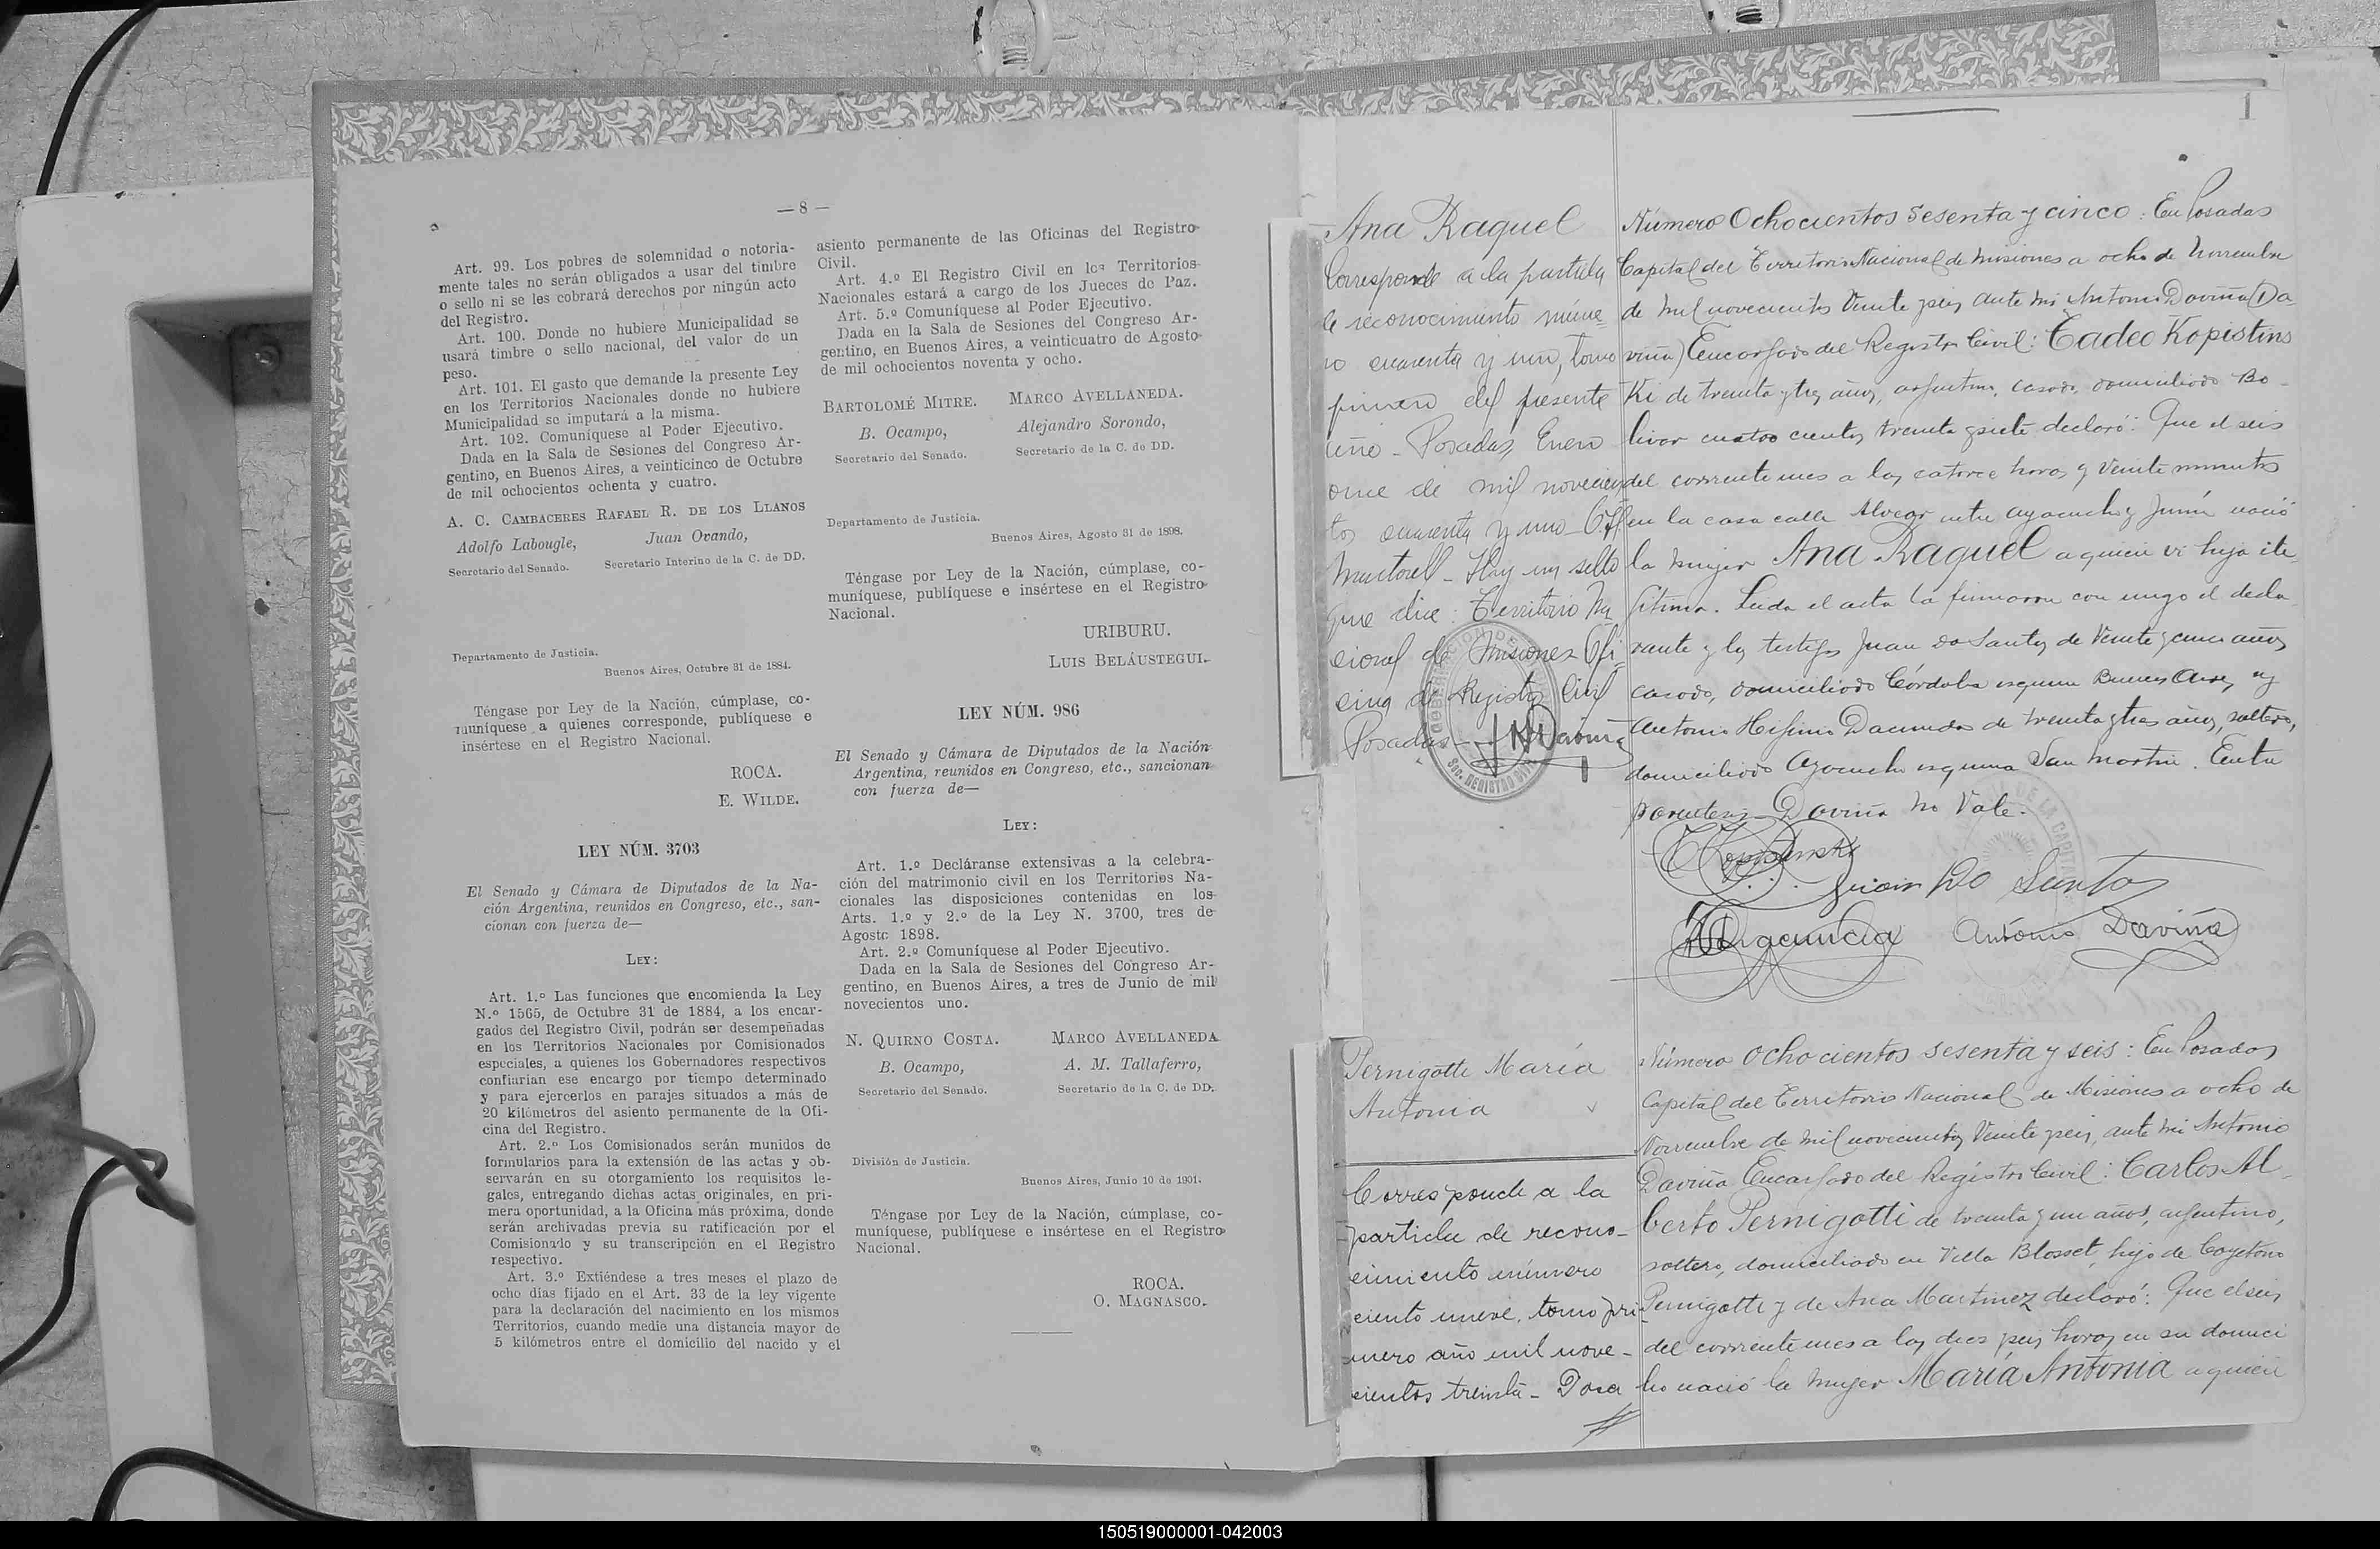 — 8 —
Art. 99. Los pobres de solemnidad o notoria-
mente tales no serán obligados a usar del timbre
o sello ni se les cobrará derechos por ningún acto
del Registro.
Art. 100. Donde no hubiere Municipalidad se
usará timbre o sello nacional, del valor de un
peso.
Art. 101. El gasto que demande la presente Ley
en los Territorios Nacionales donde no hubiere
Municipalidad se imputará a la misma.
Art. 102. Comuníquese al Poder Ejecutivo.
Dada en la Sala de Sesiones del Congreso Ar-
gentino, en Buenos Aires, a veinticinco de Octubre
de mil ochocientos ochenta y cuatro.
A. C. CAMBACERES RAFAEL R. DE LOS LLANOS
Adolfo Labougle, Juan Ovando,
Secretario del Senado. Secretario Interino de la C. de DD.
Departamento de Justicia.
Buenos Aires, Octubre 31 de 1884.
Téngase por Ley de la Nación, cúmplase, co-
muníquese a quienes corresponde, publíquese e
insértese en el Registro Nacional.
ROCA.
E. WILDE.
LEY NÚM. 3703
El Senado y Cámara de Diputados de la Na-
ción Argentina, reunidos en Congreso, etc., san-
cionan con fuerza de—
LEY:
Art. 1.º Las funciones que encomienda la Ley
N.º 1565, de Octubre 31 de 1884, a los encar-
gados del Registro Civil, podrán ser desempeñadas
en los Territorios Nacionales por Comisionados
especiales, a quienes los Gobernadores respectivos
confiarían ese encargo por tiempo determinado
y para ejercerlos en parajes situados a más de
20 kilómetros del asiento permanente de la Ofi-
cina del Registro.
Art. 2.º Los Comisionados serán munidos de
formularios para la extensión de las actas y ob-
servarán en su otorgamiento los requisitos le-
gales, entregando dichas actas originales, en pri-
mera oportunidad, a la Oficina más próxima, donde
serán archivadas previa su ratificación por el
Comisionado y su transcripción en el Registro
respectivo.
Art. 3.º Extiéndese a tres meses el plazo de
ocho días fijado en el Art. 33 de la ley vigente
para la declaración del nacimiento en los mismos
Territorios, cuando medie una distancia mayor de
5 kilómetros entre el domicilio del nacido y el
asiento permanente de las Oficinas del Registro
Civil.
Art. 4.º El Registro Civil en los Territorios
Nacionales estará a cargo de los Jueces de Paz.
Art. 5.º Comuníquese al Poder Ejecutivo.
Dada en la Sala de Sesiones del Congreso Ar-
gentino, en Buenos Aires, a veinticuatro de Agosto
de mil ochocientos noventa y ocho.
BARTOLOMÉ MITRE. MARCO AVELLANEDA.
B. Ocampo, Alejandro Sorondo,
Secretario del Senado. Secretario de la C. de DD.
Departamento de Justicia.
Buenos Aires, Agosto 31 de 1898.
Téngase por Ley de la Nación, cúmplase, co-
muníquese, publíquese e insértese en el Registro
Nacional.
URIBURU.
LUIS BELÁUSTEGUI.
LEY NÚM. 986
El Senado y Cámara de Diputados de la Nación
Argentina, reunidos en Congreso, etc., sancionan
con fuerza de—
LEY:
Art. 1.º Decláranse extensivas a la celebra-
ción del matrimonio civil en los Territorios Na-
cionales las disposiciones contenidas en los
Arts. 1.º y 2.º de la Ley N. 3700, tres de
Agosto 1898.
Art. 2.º Comuníquese al Poder Ejecutivo.
Dada en la Sala de Sesiones del Congreso Ar-
gentino, en Buenos Aires, a tres de Junio de mil
novecientos uno.
N. QUIRNO COSTA. MARCO AVELLANEDA
B. Ocampo, A. M. Tallaferro,
Secretario del Senado. Secretario de la C. de DD.
División de Justicia.
Buenos Aires, Junio 10 de 1901.
Téngase por Ley de la Nación, cúmplase, co-
muníquese, publíquese e insértese en el Registro
Nacional.
ROCA.
O. MAGNASCO.
1
Ana Raquel
Corresponde a la partida
de reconocimiento núme-
ro cuarenta y uno, tomo
primero del presente
año - Posadas, Enero
once de mil novecien
tos cuarenta y uno -
Martorell - Hay un sello
que dice: Territorio Na
cional de Misiones Ofi-
cina de Registro Civil
Posadas -
Número Ochocientos sesenta y cinco: En Posadas
Capital del Territorio Nacional de Misiones a ocho de Noviembre
de mil novecientos veinte y seis ante mi Antonio Daviña (Da-
viña) Encargado del Registro Civil: Tadeo Kopistins
Ki de treinta y tres años, argentino, casado, domiciliado Bo-
livar cuatro cientos treinta y siete declaró: Que el seis
del corriente mes a las catorce horas y veinte minutos
en la casa calle Alvear entre Ayacucho y Junín nació
la mujer Ana Raquel a quien vi hija ile
gítima. Leida el acta la firmaron con migo el decla
rante y los testigos Juan do Santos de veinte y cinco años
casado, domiciliado Córdoba esquina Buenos Aires y
Antonio Higinio Dacunda de treinta y tres años, soltero,
domiciliado Ayacucho esquina San Martin. Entre
parentesis - Daviña no Vale.
Juan Do Santos
Antonio Daviña
Pernigotti María
Antonia
Corresponde a la
partida de recono-
cimiento número
ciento nueve, tomo pri-
mero año mil nove-
cientos treinta - Posa
Número Ochocientos sesenta y seis: En Posadas
Capital del Territorio Nacional de Misiones a ocho de
Noviembre de mil novecientos veinte y seis, ante mi Antonio
Daviña Encargado del Registro Civil: Carlos Al-
berto Pernigotti de treinta y un años, argentino,
soltero, domiciliado en Villa Blosset, hijo de Cayetano
Pernigotti y de Ana Martinez declaró: Que el seis
del corriente mes a las diez y seis horas en su domici
lio nació la mujer María Antonia a quien
150519000001-042003